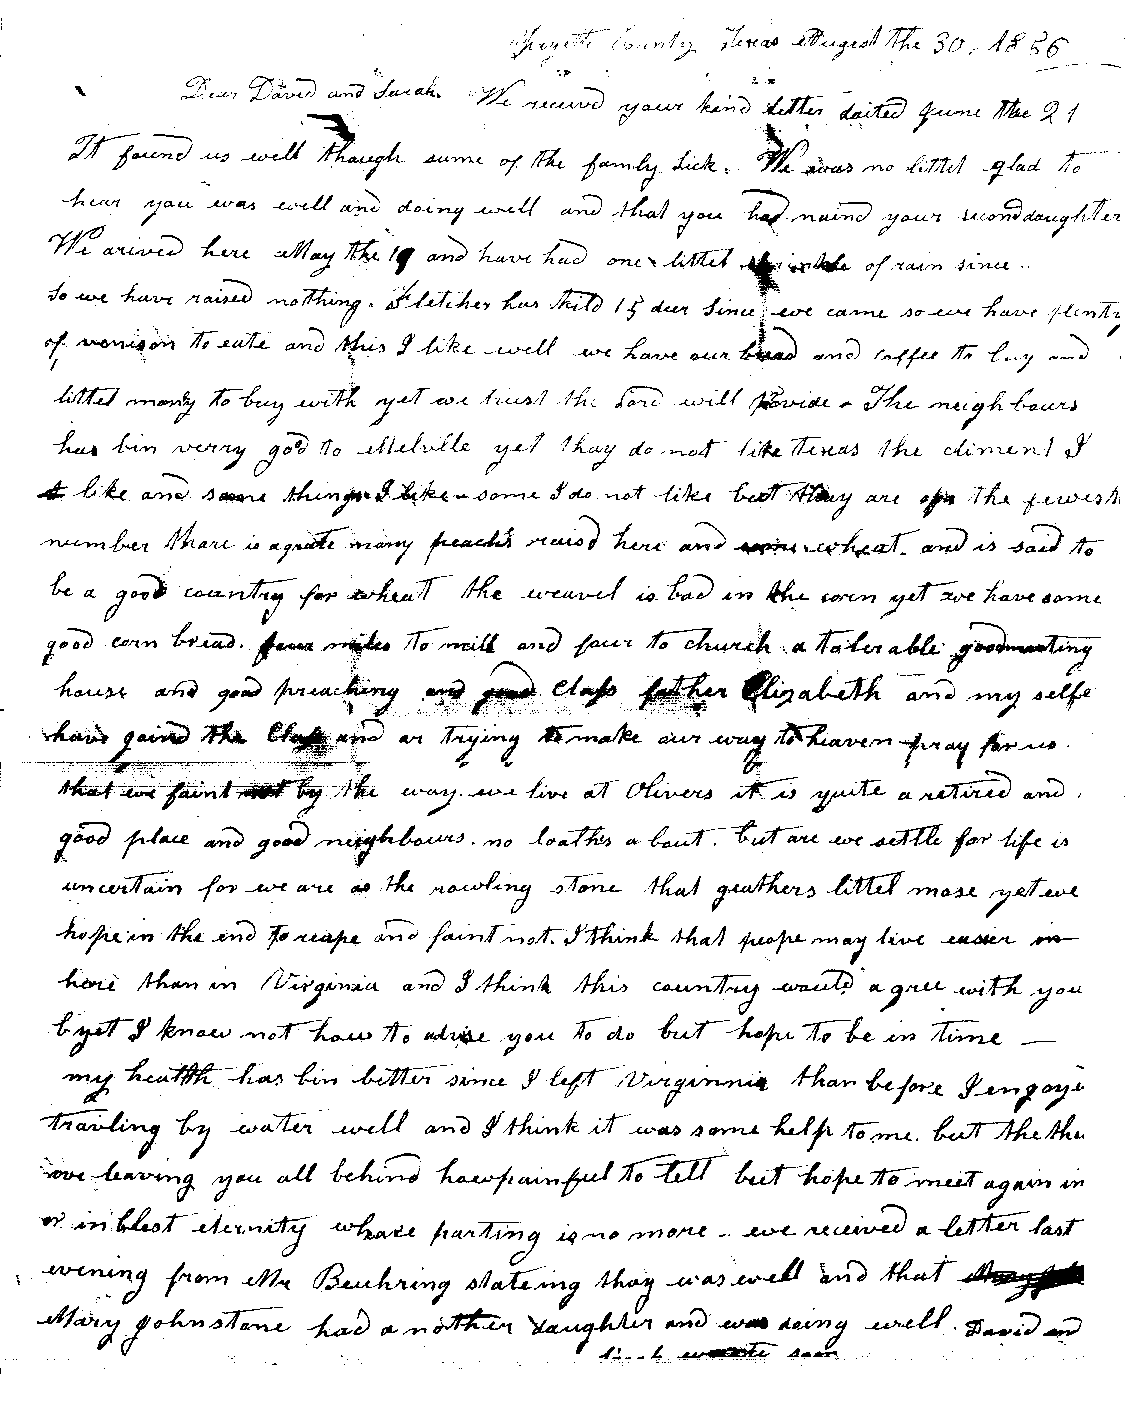 Fayette County Texas August the 30, 1856
Dear David and Sarah. We received your kind letter daited June the 21
It found us well though sume of the famly sick. We was no littel glad to
hear you was well and doing well and that you had naimd your seconddaughter
We arived here May the 19 and have had one littel sprinkle of rain since..
So we have raised nothing. Fletcher has kild 15 deer since we came so we have plenty
of venison to eate and this I like well we have our bread and coffee to buy and
littel mony to buy with yet we trust the Lord will provide. The neighbours
has bin verry good to Melville yet thay do not like Texas the climent I
like and some things I like some I do not like but thay are of the fewest
number thare is agrate many peachs raisd here and some wheat. and is said to
be a good country for wheat the weavel is bad in the coren yet we have some
good corn bread. four miles to mill and four to church a tolerable goodmeeting
house and good preaching and good Class father Elizabeth and my selfe
have gaind the Class and ar trying to make our way to heaven pray for us.
that we faint not by the way. we live at Olivers it is quite a retired and
good place and good neighbours. no loathes a bout. but are we settle for life is
uncertain for we are as the rowling stone that geathers littel mose yet we
hope in the end to reape and faint not. I think that peope may live easier
here than in Virginia and I think this country would agree with you
yet I know not how to advise you to do but hope to be in time —
my health has bin better since I left Virginnia than before I engoye
travling by water well and I think it was some help to me. but the the
leaving you all behind howpainful to tell but hope to meet again in
or in blest eternity whare parting is no more - we received a letter last
evening from Mr Beuhring stateing thay was well and that
Mary Johnstone had a nother daughter and was doing well. David and
write soon